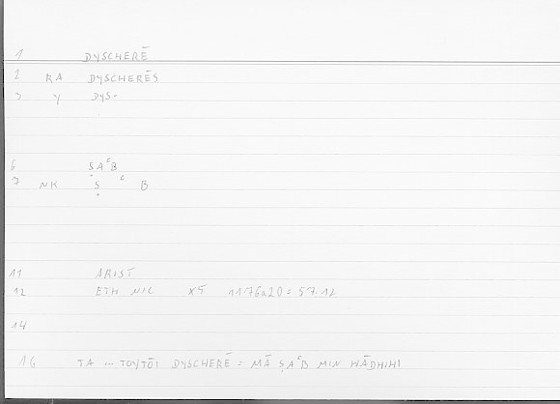 1 DYSCHERĒ
2 RA DYSCHERĒS
3 Y DYS-
6 ṢAᶜB
7 NK Ṣ ᶜ B
11 ARIST
12 ETH NIC X5 1176a20 = 57.12
14
16 TA ... TOYTŌI DYSCHERĒ = MĀ ṢAᶜB MIN HĀDHIHI